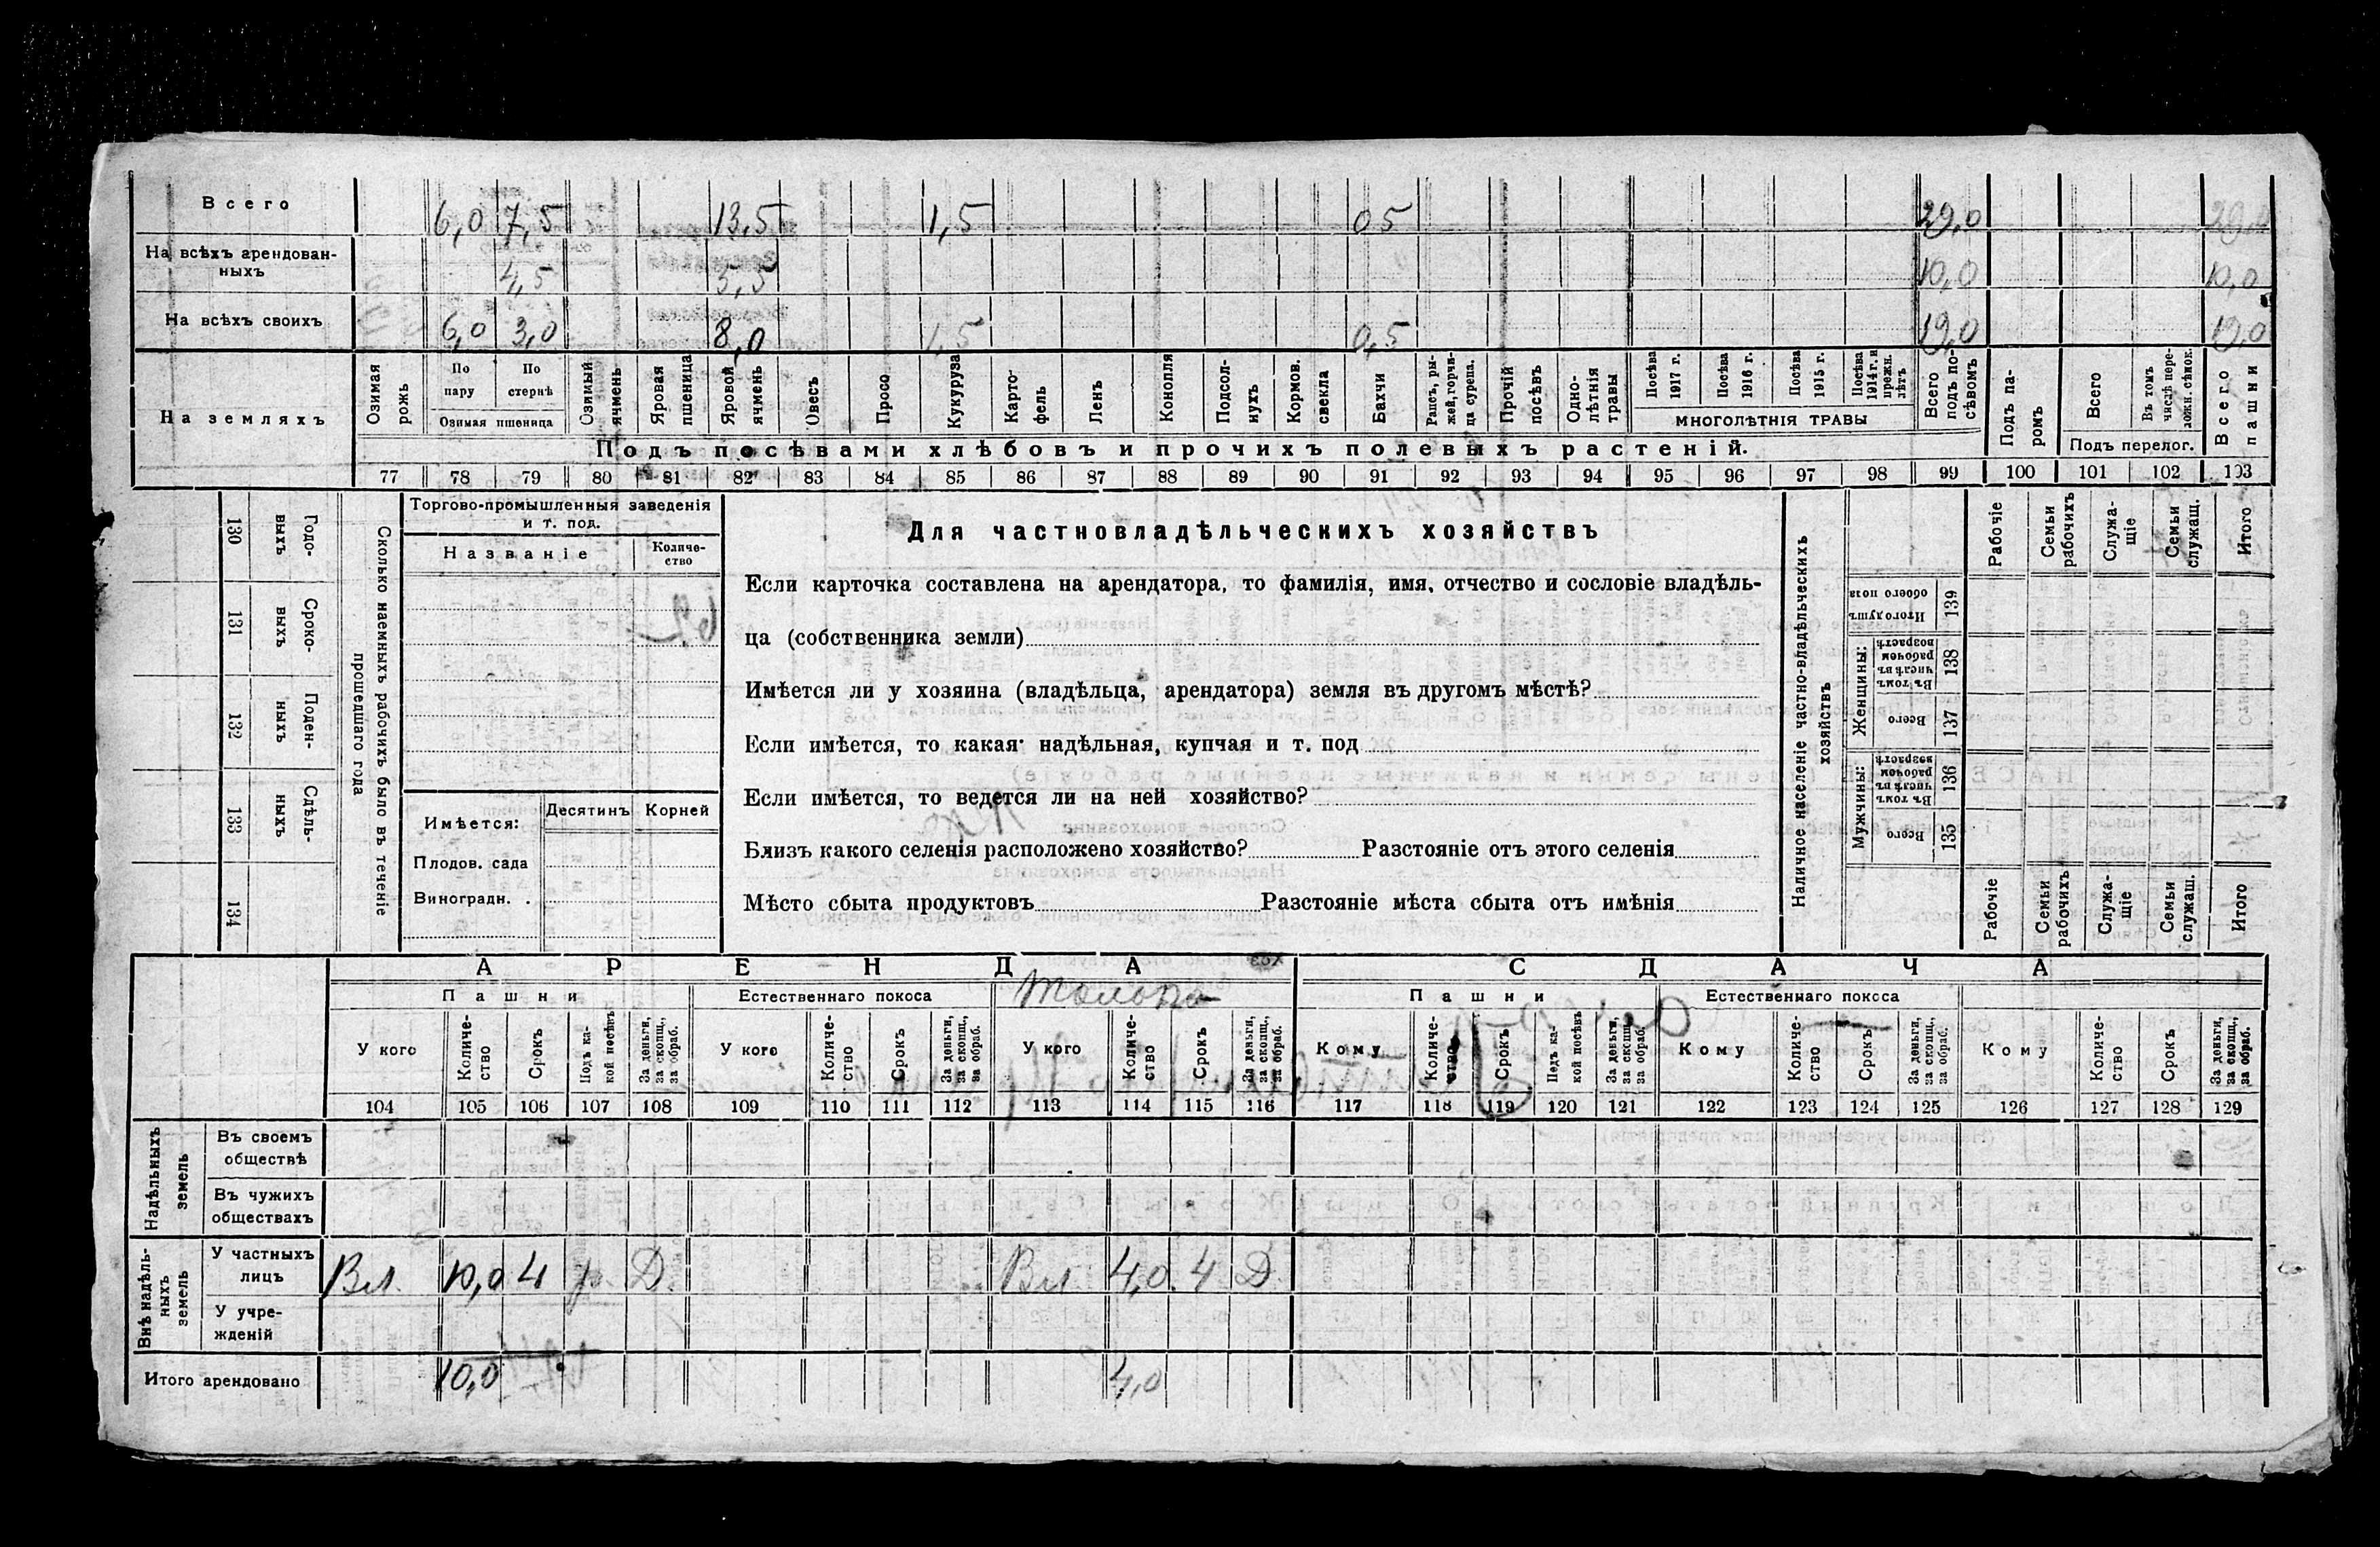 Всего 6,0 7,5 13,5 1,5 0 5 29,0 29,0
На всѣхъ арендован-
ныхъ 4,5 5,5 10,0 10,0
На всѣхъ своихъ 6,0 3,0 8,0 1,5 0,5 19,0 19,0
На земляхъ
Озимая рожь
По пару
По стернѣ
Озимая пшеница
Озимый ячмень
Яровая пшеница
Яровой ячмень
Овесъ
Просо
Кукуруза
Карто-
фель
Ленъ
Конопля
Подсол-
нухъ
Кормов.
свекла
Бахчи
Рапсъ, ры-
жей, горчи-
ца сурепа.
Прочій
посѣвъ
Одно-
лѣтнія
травы
Посѣва
1917 г.
Посѣва
1916 г.
Посѣва
1915 г.
Посѣва
1914 г. и
прежн.
лѣтъ
МНОГОЛѢТНІЯ ТРАВЫ
Всего
подъ по-
сѣвомъ
Подъ па-
ромъ
Всего
Въ томъ
числѣ пере-
ложн. сѣнок.
Подъ перелог.
Всего
пашни
Подъ посѣвами хлѣбовъ и прочихъ полевыхъ растеній.
77 78 79 80 81 82 83 84 85 86 87 88 89 90 91 92 93 94 95 96 97 98 99 100 101 102 103
130 Годо-
выхъ
131 Сроко-
выхъ
132 Поден-
ныхъ
133 Сдѣль-
ныхъ
134
Сколько наемныхъ рабочихъ было въ теченіе
прошедшаго года
Торгово-промышленныя заведенія
и т. под.
Названіе
Количе-
ство
Имѣется:
Десятинъ Корней
Плодов. сада
Виноградн. .
Для частновладѣльческихъ хозяйствъ
Если карточка составлена на арендатора, то фамилія, имя, отчество и сословіе владѣль-
ца (собственника земли)
Имѣется ли у хозяина (владѣльца, арендатора) земля въ другомъ мѣстѣ?
Если имѣется, то какая: надѣльная, купчая и т. под
Если имѣется, то ведется ли на ней хозяйство?
Близъ какого селенія расположено хозяйство? Разстояніе отъ этого селенія
Мѣсто сбыта продуктовъ Разстояніе мѣста сбыта отъ имѣнія
Наличное населеніе частно-владѣльческихъ
хозяйствъ
Рабочіе
Семьи
рабочихъ
Служа-
щіе
Семьи
служащ.
Итого
Итого душъ
обоего пола
139
Женщины:
Въ томъ
числѣ въ
рабочем
возрастѣ
138
Всего
137
Мужчины:
Въ томъ
числѣ въ
рабочем
возрастѣ
136
Всего
135
Рабочіе
Семьи
рабочихъ
Служа-
щіе
Семьи
служащ.
Итого
АРЕНДА СДАЧА
Пашни Естественнаго покоса Толока Пашни Естественнаго покоса
У кого
Количе-
ство
Срокъ
Подъ ка-
кой посѣвъ
За деньги,
за скопщ.,
за обраб.
У кого
Количе-
ство
Срокъ
За деньги,
за скопщ.,
за обраб.
У кого
Количе-
ство
Срокъ
За деньги,
за скопщ.,
за обраб.
Кому
Количе-
ство
Срокъ
Подъ ка-
кой посѣвъ
За деньги,
за скопщ.,
за обраб.
Кому
Количе-
ство
Срокъ
За деньги,
за скопщ.,
за обраб.
Кому
Количе-
ство
Срокъ
За деньги,
за скопщ.,
за обраб.
104 105 106 107 108 109 110 111 112 113 114 115 116 117 118 119 120 121 122 123 124 125 126 127 128 129
Надѣльныхъ
земель
Въ своемъ
обществѣ
Въ чужихъ
обществахъ
Внѣ надѣль-
ныхъ
земель
У частныхъ
лицъ Вл. 10,0 4 Д. Вл 4,0 4 Д
У учре-
жденій
Итого арендовано 10,0 4,0